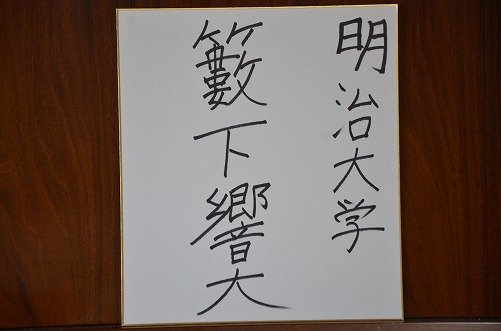 明治大学
籔下響大